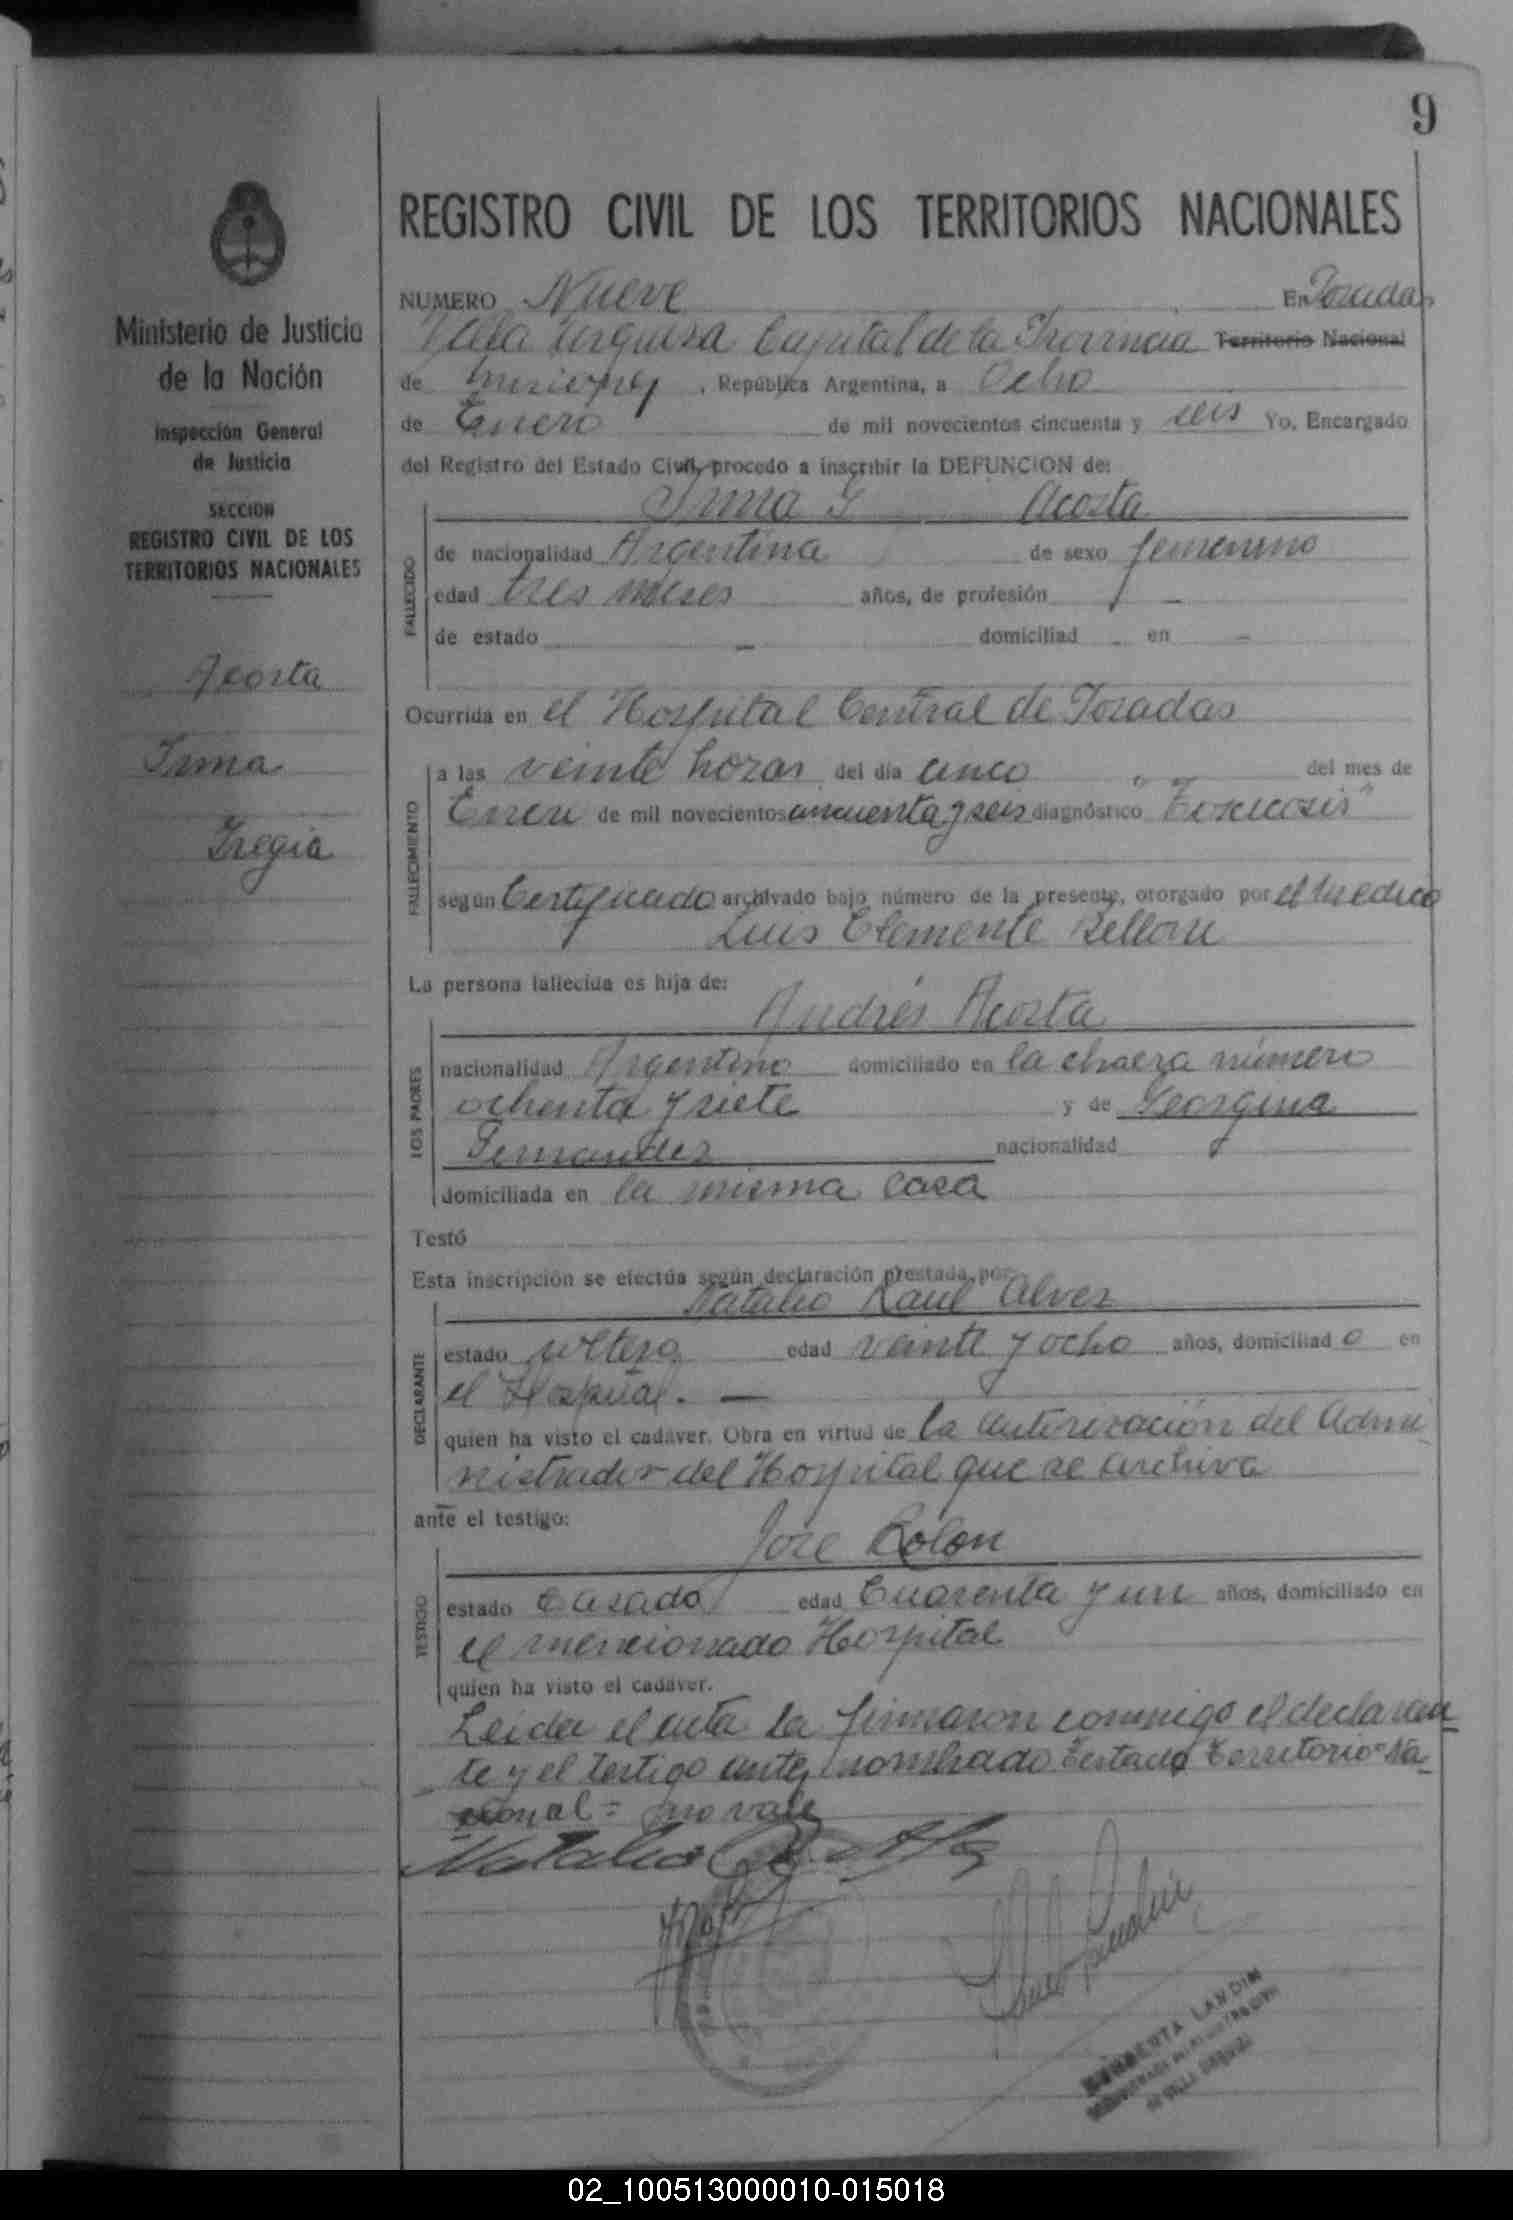 9
REGISTRO CIVIL DE LOS TERRITORIOS NACIONALES
Ministerio de Justicia
de la Nación
Inspección General
de Justicia
SECCION
REGISTRO CIVIL DE LOS
TERRITORIOS NACIONALES
Acosta
Irma
NUMERO Nueve En Posadas
Villa Urquiza Capital de la Provincia Territorio Nacional
de Misiones, República Argentina, a Ocho
de Enero de mil novecientos cincuenta y seis Yo, Encargado
del Registro del Estado Civil, procedo a inscribir la DEFUNCION de:
Irma Acosta
FALLECIDO
de nacionalidad Argentina de sexo femenino
edad tres meses años, de profesión -
de estado - domiciliad - en -
Ocurrida en el Hospital Central de Posadas
FALLECIMIENTO
a las veinte horas del día cinco del mes de
Enero de mil novecientos cincuenta y seis diagnóstico "Toxicosis"
según Certificado archivado bajo número de la presente, otorgado por el médico
Luis Clemente
La persona fallecida es hija de:
Andrés Acosta
LOS PADRES
nacionalidad Argentino domiciliado en la chacra número
ochenta y siete y de Georgina
Fernandez nacionalidad
domiciliada en la misma casa
Testó
Esta inscripción se efectúa según declaración prestada por
Natalio Raul Alvez
DECLARANTE
estado soltero edad veinte y ocho años, domiciliad o en
el Hospital. —
quien ha visto el cadáver. Obra en virtud de la autorización del Admi
nistrador del Hospital que se archiva
ante el testigo:
José Rolon
TESTIGO
estado Casado edad Cuarenta y un años, domiciliado en
el mencionado Hospital
quien ha visto el cadáver.
Leida el acta la firmaron conmigo el declaran
te y el testigo ante nombrado Testado Territorio=Na
cional= no vale
LANDIN
02_100513000010-015018